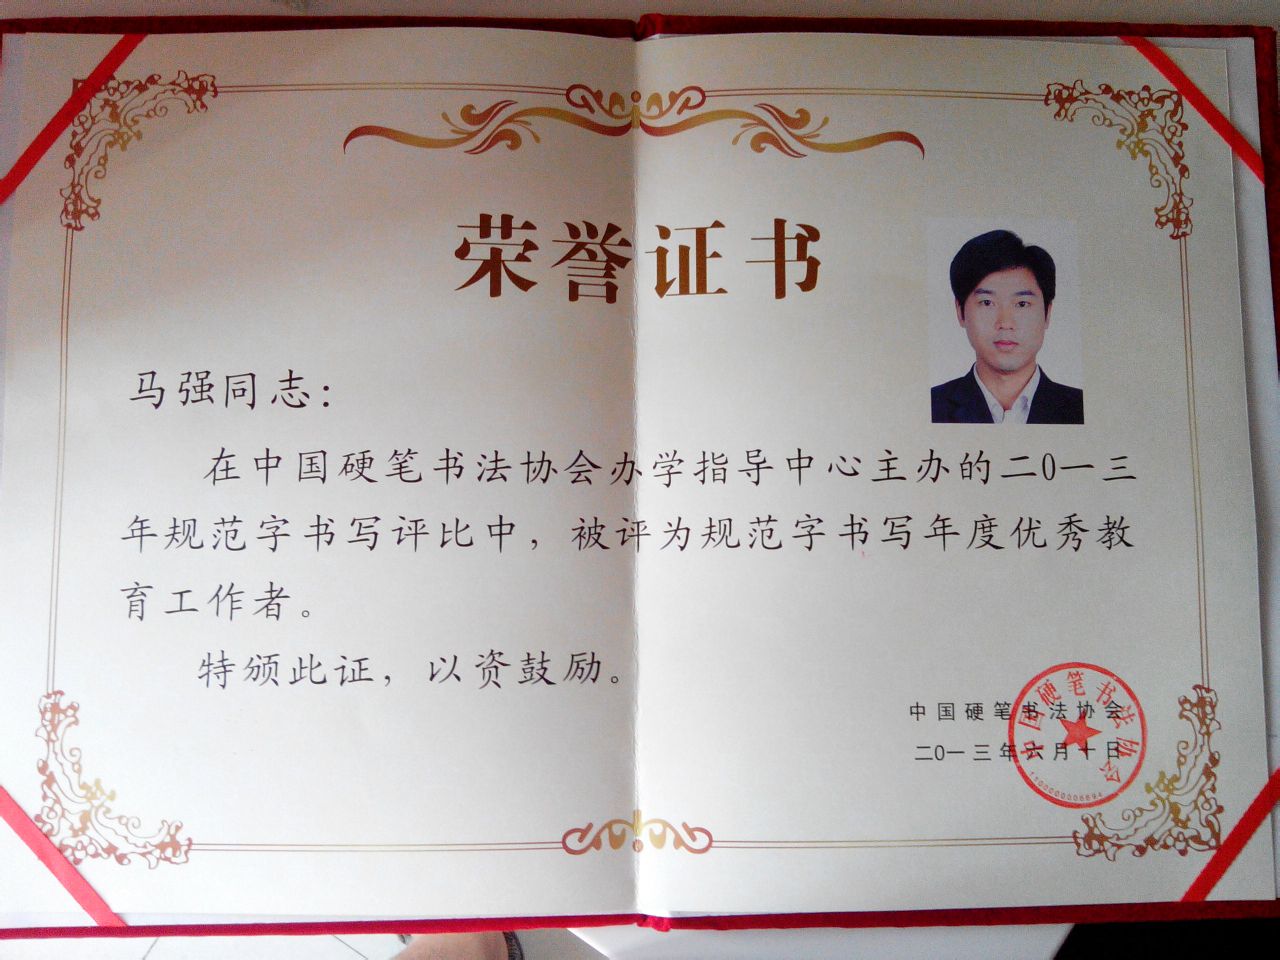 荣誉证书
马强同志：
在中国硬笔书法协会办学指导中心主办的二0一三
年规范字书写评比中，被评为规范字书写年度优秀教
育工作者。
特颁此证，以资鼓励。
中国硬笔书法协会
二0一三年六月十日
中国硬笔书法协会